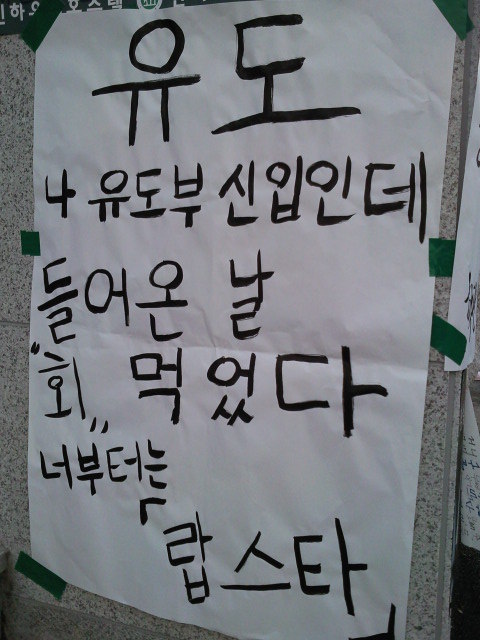 유도
나 유도부 신입인데
들어온 날
"회" 먹었다
너부터는
「랍스타」